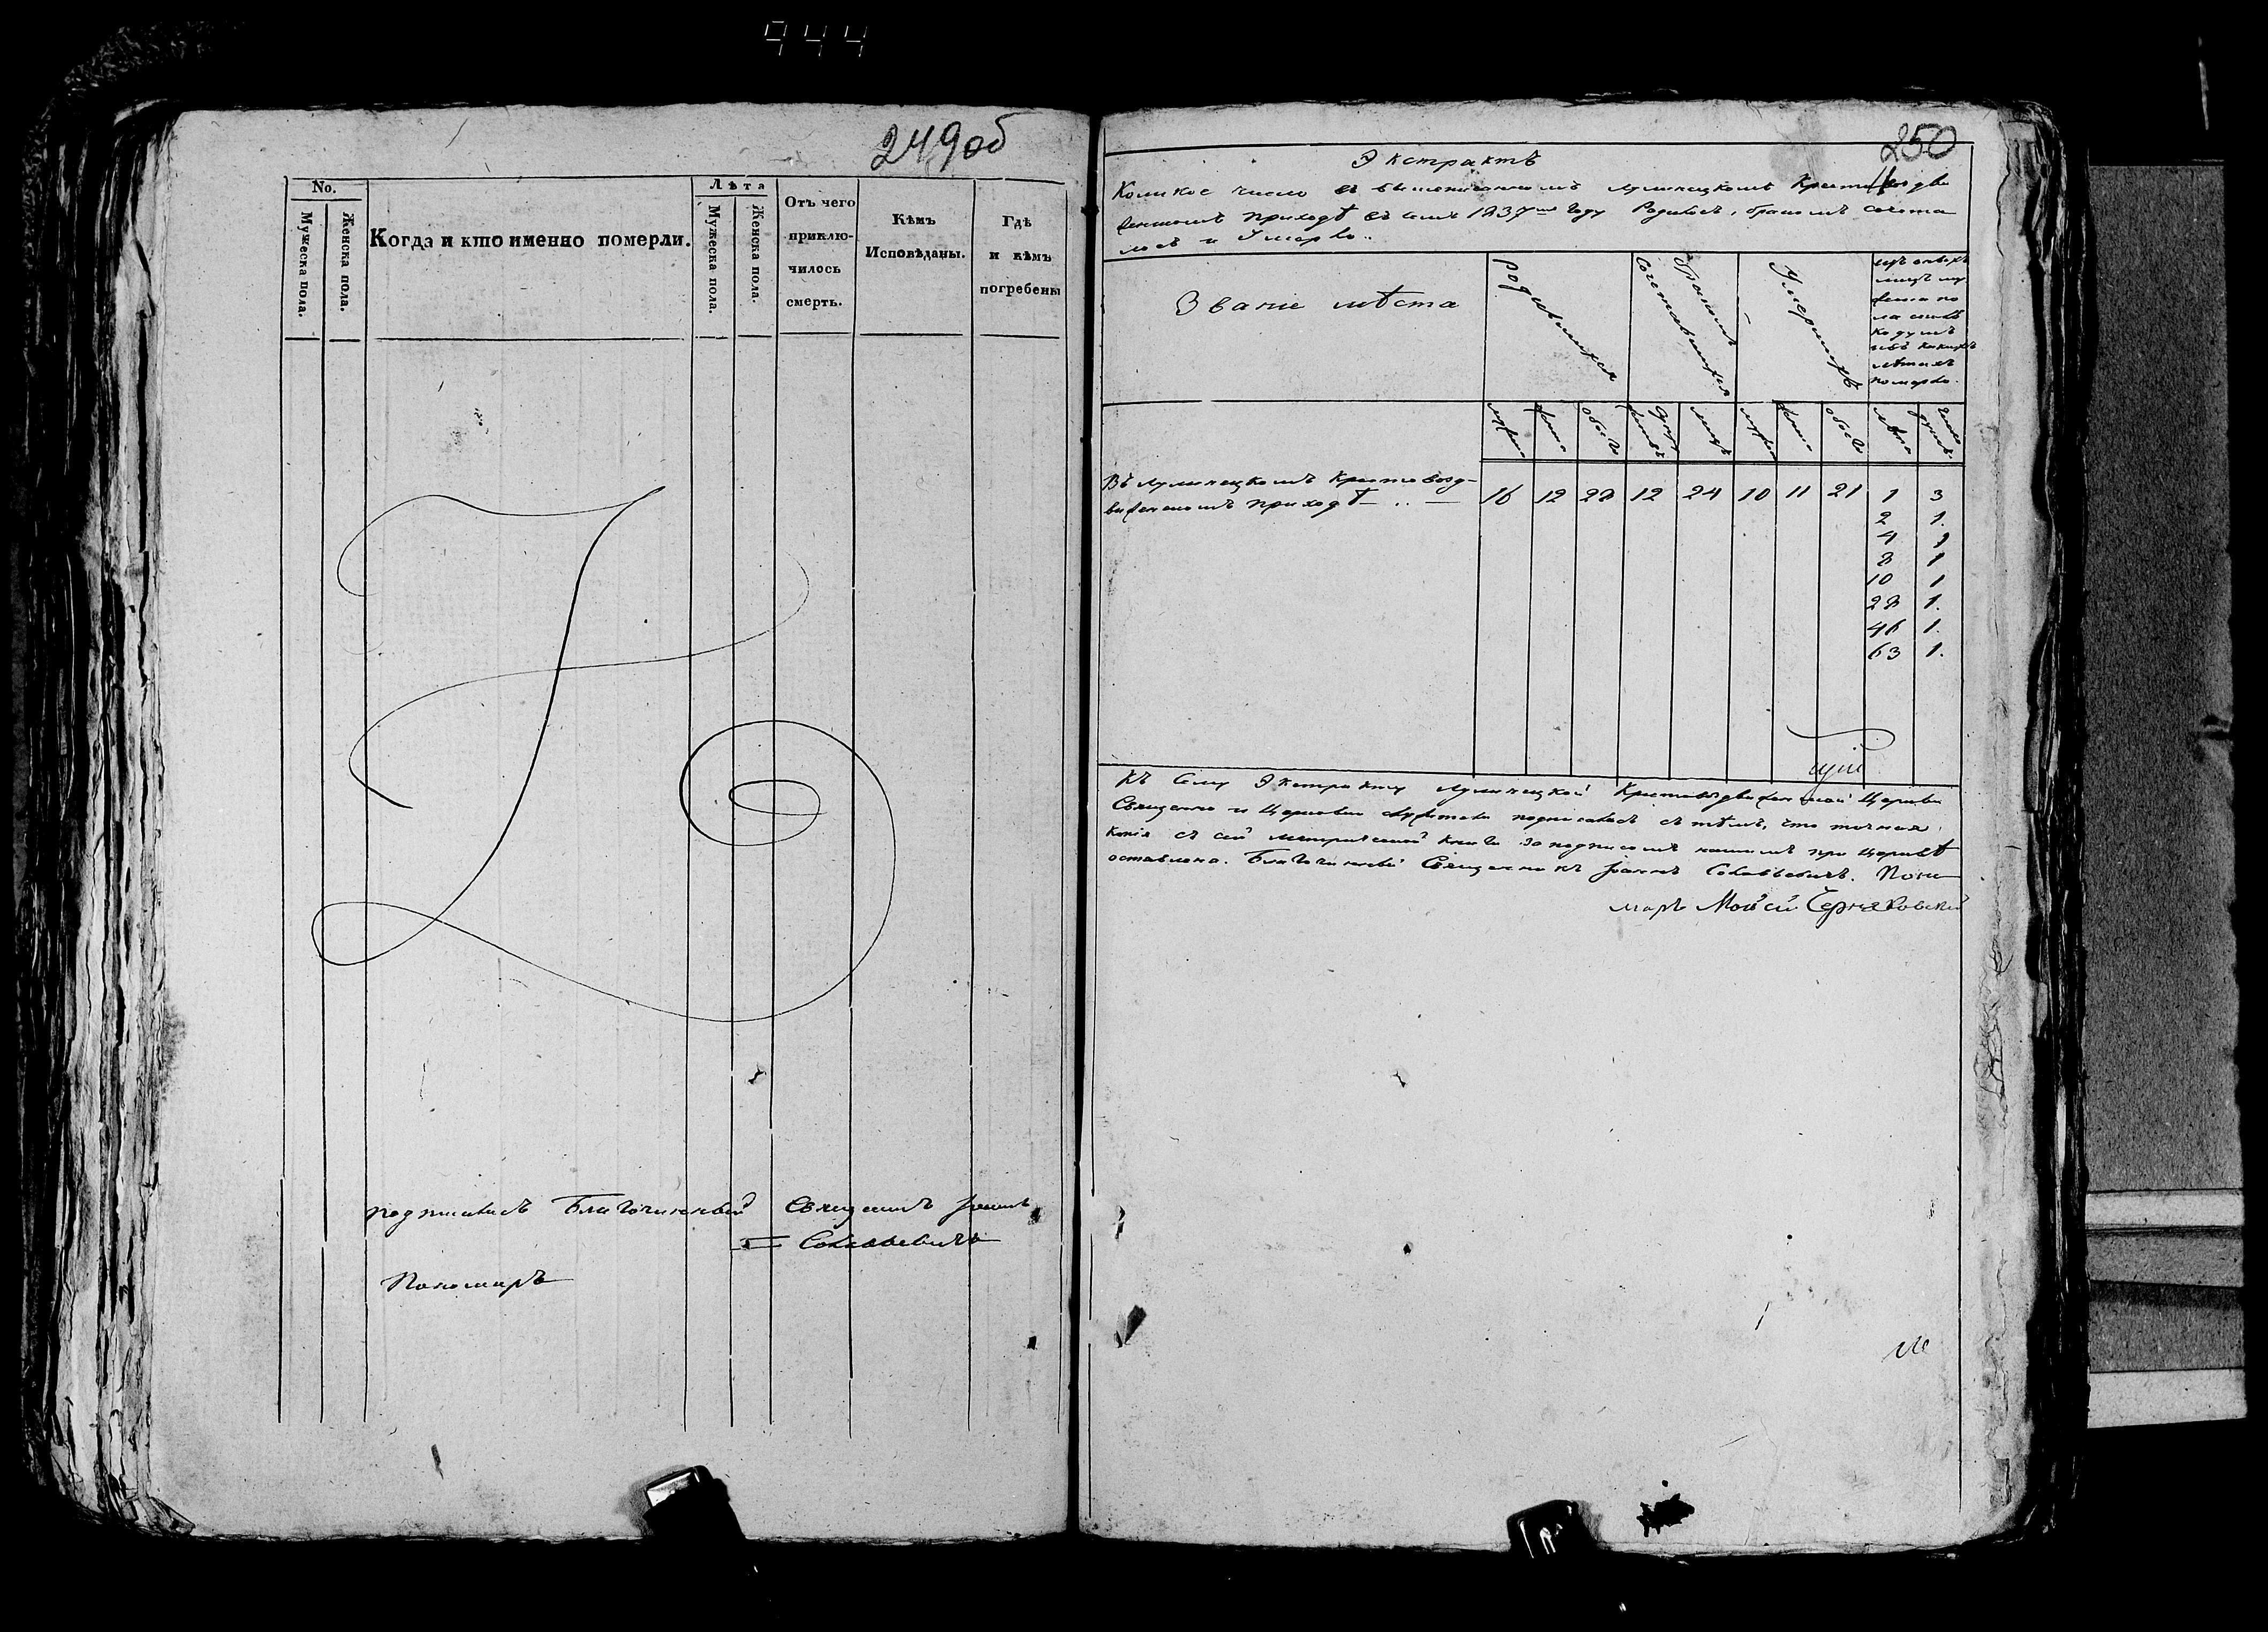 944
249 об
No.
Мужеска пола.
Женска пола.
Когда и кто именно померли.
Лѣта
Мужеска пола.
Женска пола.
Отъ чего
приклю-
чилось
смерть.
Кѣмъ
Исповѣданы.
Гдѣ
и кѣмъ
погребены
подписался Благочинный Священникъ Іоаннъ
Пономарь
250
Экстрактъ
Коликое число въ вышеписанномъ Лулинецкомъ Крестовоздви
женскомъ приходѣ въ семъ 1837мъ году Родилось, бракомъ сочета
лось и Умерло..
Званіе мѣста
родившихся
бракомъ
сочетавшихся
Умершихъ
померло.
мужеска
женска
обоего
лицъ
мужеска
женска
обоего
лѣта
число
душъ
Въ Лулинецкомъ Крестовозд-
виженскомъ приходѣ — .. —
16 12 28 12 24 10 11 21 1 3
2 1.
4 1
8 1
10 1
28 1.
46 1.
63 1.
Къ Сему Экстракту Лулинецкой Крестовоздвиженской Церкви
Священно и Церковно служители подписались съ тѣмъ, что точная
копія съ сей метрической книги за подписомъ нашимъ при Церквѣ
оставлена. Благочинный Священникъ Іоаннъ Поно
марь Моисей Черняковскій